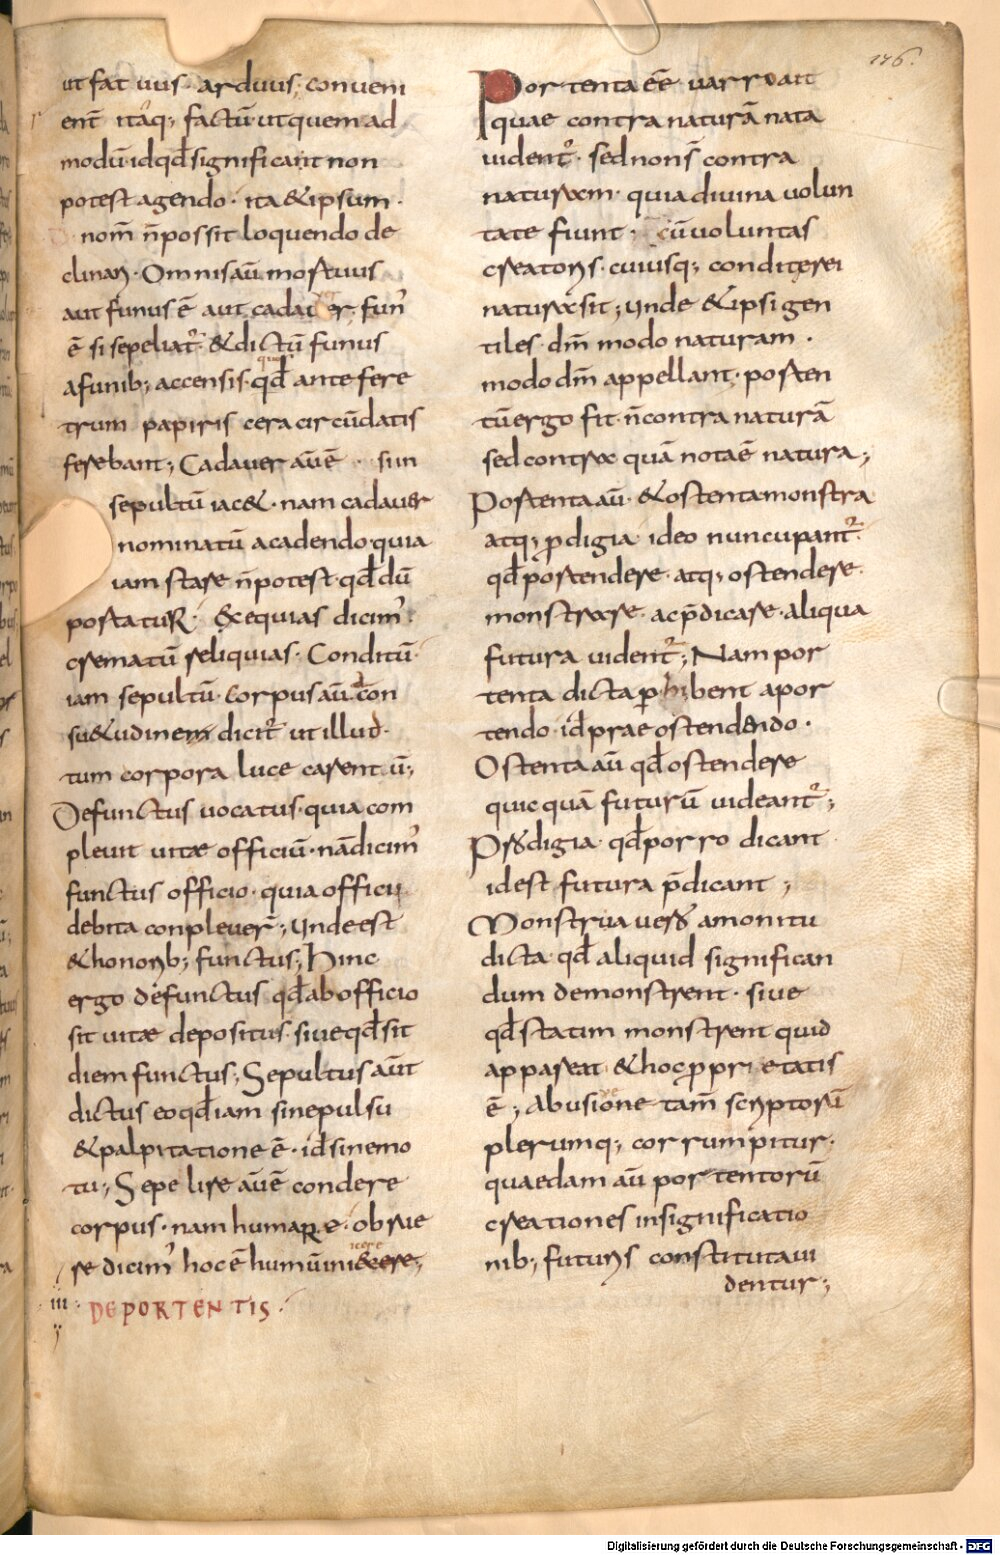 176.
ut fatuus · arduus; conueni
ent̄ itaq; factū ut quem ad
modū id qđ significant non
potest agendo · ita & ipsum ·
nom̄ n̄ possit loquendo de
clinari · Omnis aū mortuus
aut funus ē aut cadauer, fun'
ē si sepeliat̉ · & dictū funus
a funib; accensis · qđ ante fere
trum papiris cera circūdatis
ferebant; Cadauer aū ē · si in
sepultū iac& · nam cadauer
nominatū a cadendo · quia
iam stare n̄ potest · qđ dū
portatur · Exequias dicim'
crematū reliquias · Conditū ·
iam sepultū · Corpus aū con
su&udinem dicit̉ ut illud ·
tum corpora luce carentū;
Defunctus uocatus · quia com
pleuit uitae officiū · nā dicim'
functus officio · quia officii
debita conpleuer̄; Unde est
& honorib; functus; Hinc
ergo defunctus qđ ab officio
sit uitae depositus · siue qđ sit
diem functus; Sepultus aūt
dictus eo qđ iam sine pulsu
& palpitatione ē · id sine mo
tu; Sepelire aū ē condere
corpus · nam humare · obrue
re dicim' hoc ē humū inicere;
iii · DE PORTENTIS ·
Portenta eē uarro ait
quae contra naturā nata
uident̉ · sed non s̄ contra
naturam · quia diuina uolun
tate fiunt · cū uoluntas
creatoris · cuiusq; condite rei
natura sit; Unde & ipsi gen
tiles · dm̄ modo naturam ·
modo dm̄ appellant · porten
tū ergo fit · n̄ contra naturā
sed contra quā nota ē natura;
Portenta aū · & ostenta monstra
atq; prodigia ideo nuncupant̉ ·
qđ portendere · atq; ostendere ·
monstrare · ac p̄dicare · aliqua
futura uident̉; Nam por
tenta dicta perhibent a por
tendo · id prae ostendendo ·
Ostenta aū qđ ostendere
quicquā futurū uideant̉;
Prodigia · qđ porro dicant
id est futura p̄dicant;
Monstrua uero a monitu
dicta · qđ aliquid significan
dum demonstrent · siue
qđ statim monstrent quid
appareat & hoc proprietatis
ē; Abusione tam̄ scriptorū
plerumq; corrumpitur ·
quaedam aū portentorū
creationes in significatio
nib; futuris constituta ui
dentur;
Digitalisierung gefördert durch die Deutsche Forschungsgemeinschaft - DFG